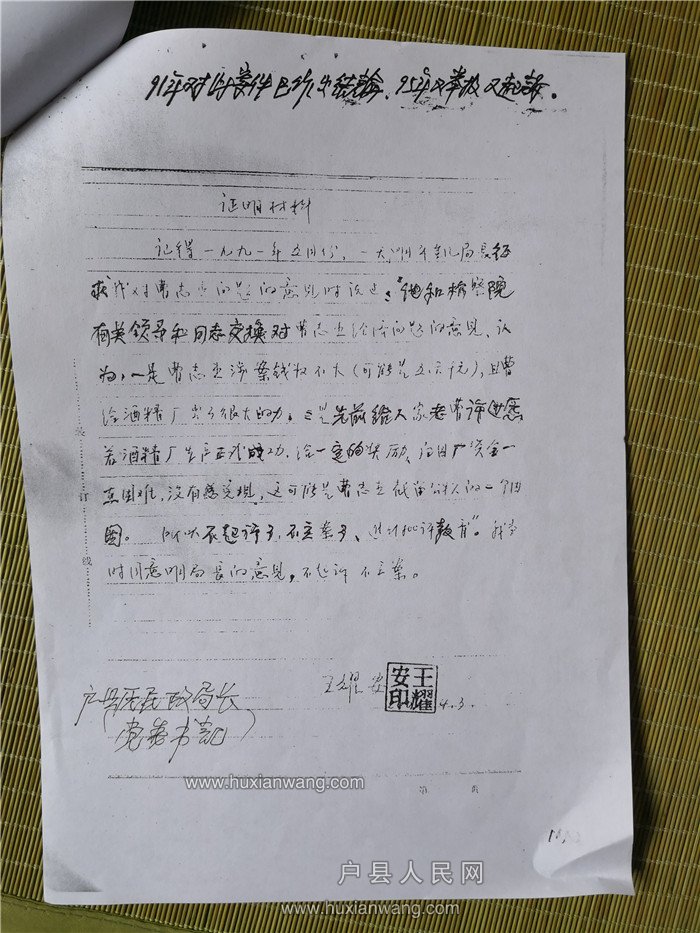 91年对此案件已作出结论、95年又举报又起诉。
证明材料
记得一九九一年五月份，一天明年凯局长征
求我对曹志亚问题的意见时说过："他和检察院
有关领导和同志交换对曹志亚经济问题的意见、认
为，一是曹志亚涉案钱数不大（可能是五六千元），且曹
给酒精厂出了很大的力。二是先前给人家老曹许过愿，
若酒精厂生产正式成功，给一定的奖励，后因厂资金一
直困难，没有兑现，这可能是曹志亚截留公款的一个原
因。所以不起诉了，不立案了，进行批评教育"。我当
时同意明局长的意见，不起诉不立案。
王耀安
王耀
安印
4.3.
户县民政局长
（党委书记）
第 页
装
订
线
www.huxianwang.com
户县人民网
www.huxianwang.com